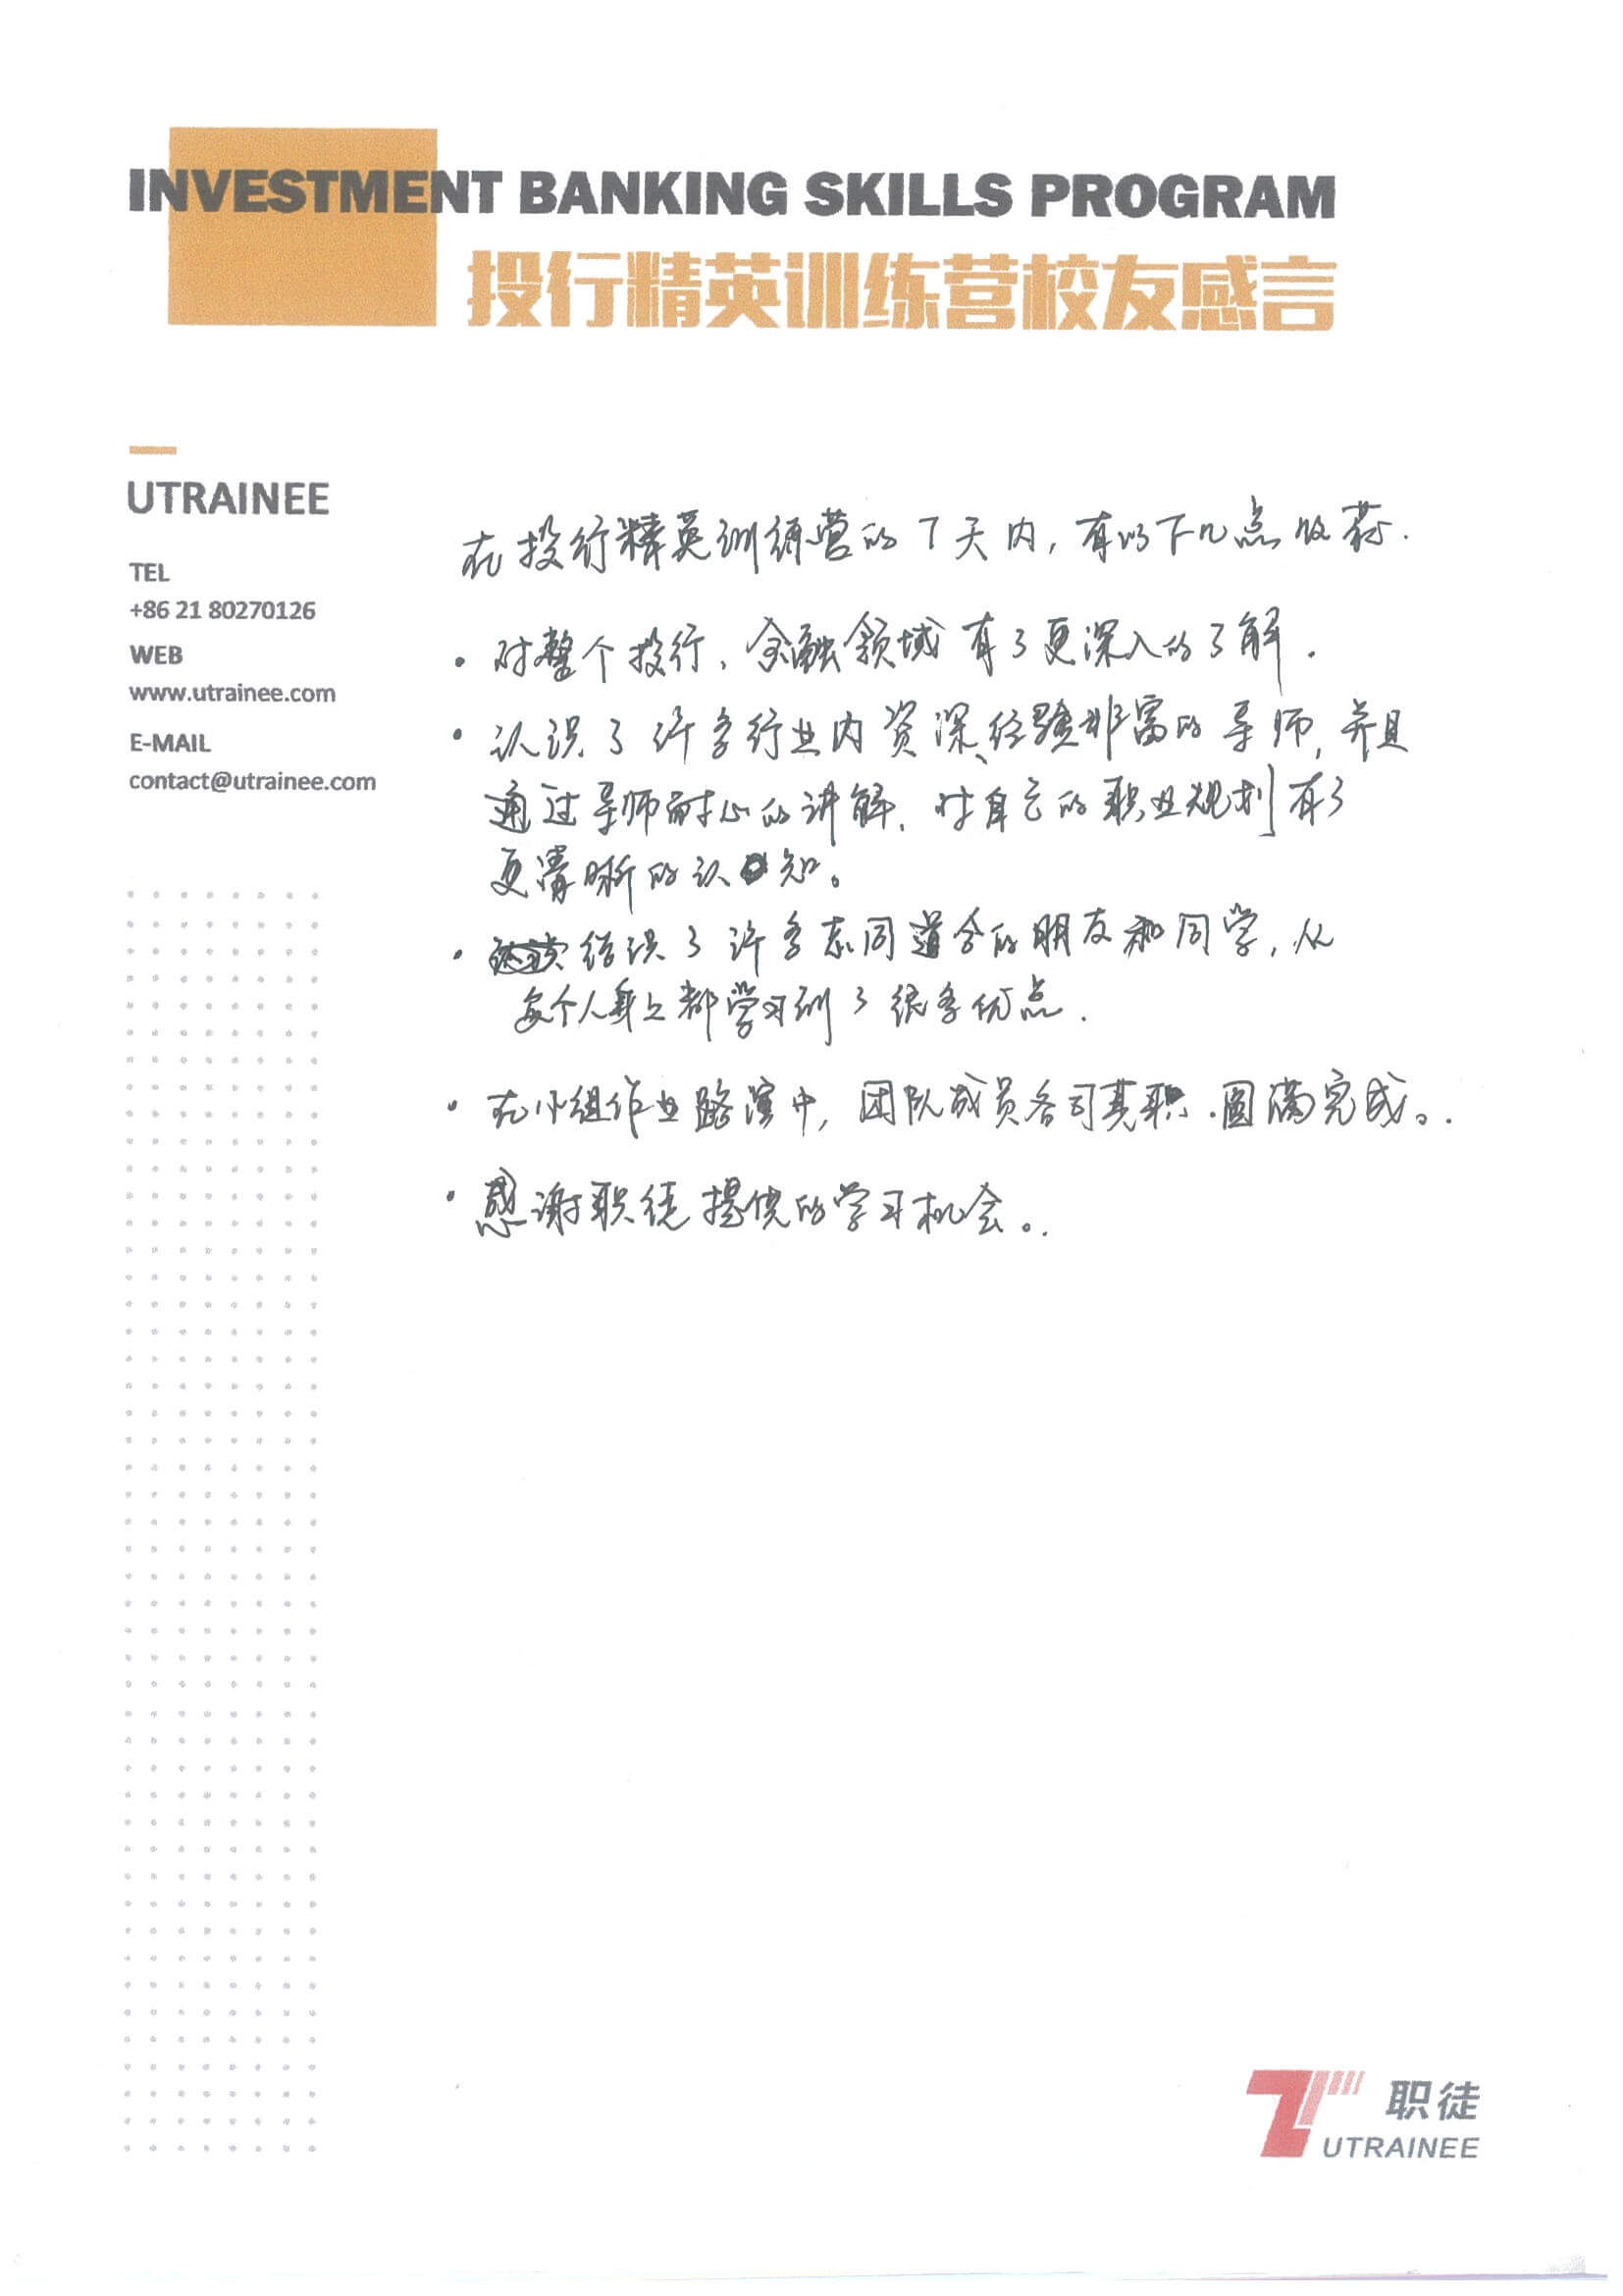 INVESTMENT BANKING SKILLS PROGRAM
投行精英训练营校友感言
UTRAINEE
TEL
+86 21 80270126
WEB
www.utrainee.com
E-MAIL
contact@utrainee.com
在投行精英训练营的7天内，有以下几点收获.
· 对整个投行、金融领域有了更深入的了解.
· 认识了许多行业内资深、经验丰富的导师，并且
通过导师耐心的讲解，对自己的职业规划有了
更清晰的认知。
· 结识了许多志同道合的朋友和同学，从
每个人身上都学习到了很多优点.
· 在小组作业路演中，团队成员各司其职.圆满完成。
· 感谢职徒提供的学习机会。
职徒
UTRAINEE